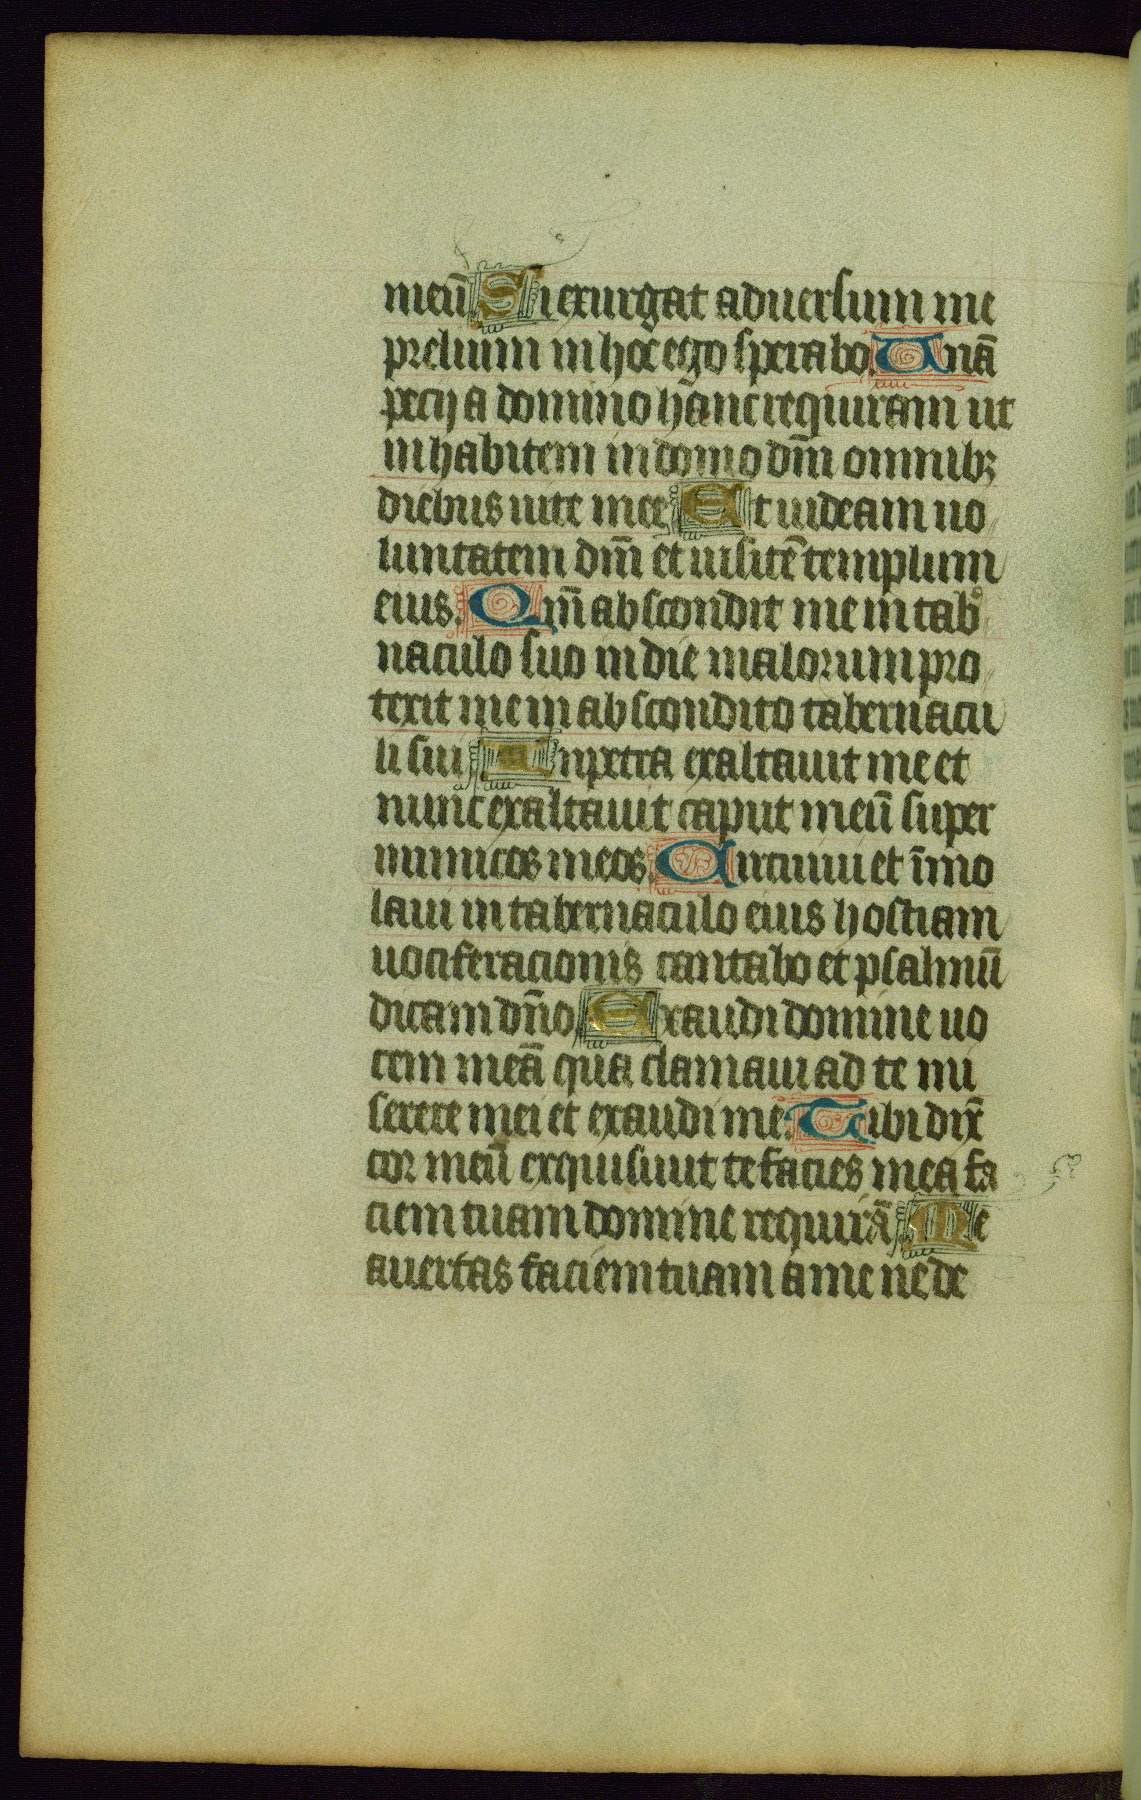 meū Si exurgat aduersum me
prelium in hoc ego sperabo. Unā
pecij a domino hanc requiram ut
inhabitem in domo dm̄ omnibꝫ
diebus uite mee Et uideam uo
luntatem dm̄ et uisitē templum
eius. Qm̄ abscondit me in tab̾
naculo suo in die malorum pro
texit me in abscondito tabernacu
li sui In petra exaltauit me et
nunc exaltauit caput meū super
inimicos meos. Circuiui et ī̄mo
laui in tabernaculo eius hostiam
uociferacionis cantabo et psalmū
dicam dn̄o Exaudi domine uo
cem meā qua clamaui ad te mi
serere mei et exaudi me. Tibi dix̄
cor meū exquisiuit te facies mea fa
ciem tuam domine requirā Ne
auertas faciem tuam a me ne de